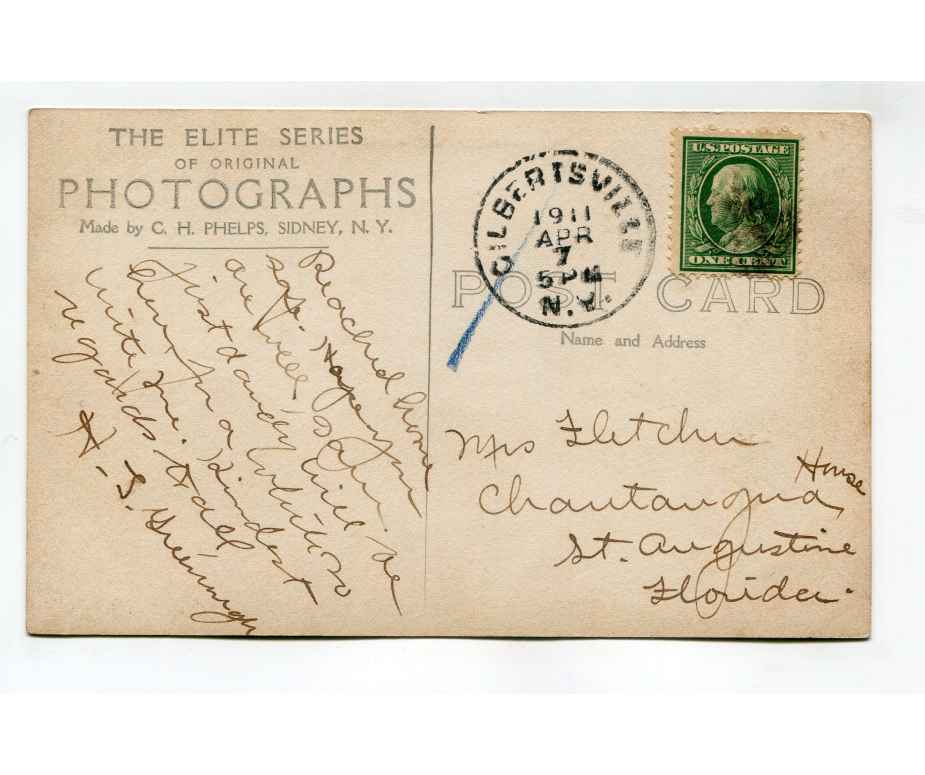 THE ELITE SERIES
OF ORIGINAL
PHOTOGRAPHS
Made by C. H. PHELPS, SIDNEY, N. Y.
Reached home
safe. Hope you
are well,
Just dandy
here for a
white one. Kindest
regards to all
H. S.
GILBERTSVILLE
1911
APR
7
5 PM
N.Y.
U.S. POSTAGE
ONE CENT
POST CARD
Name and Address
Mrs Fletcher
Chautauqua House
St. Augustine
Florida.